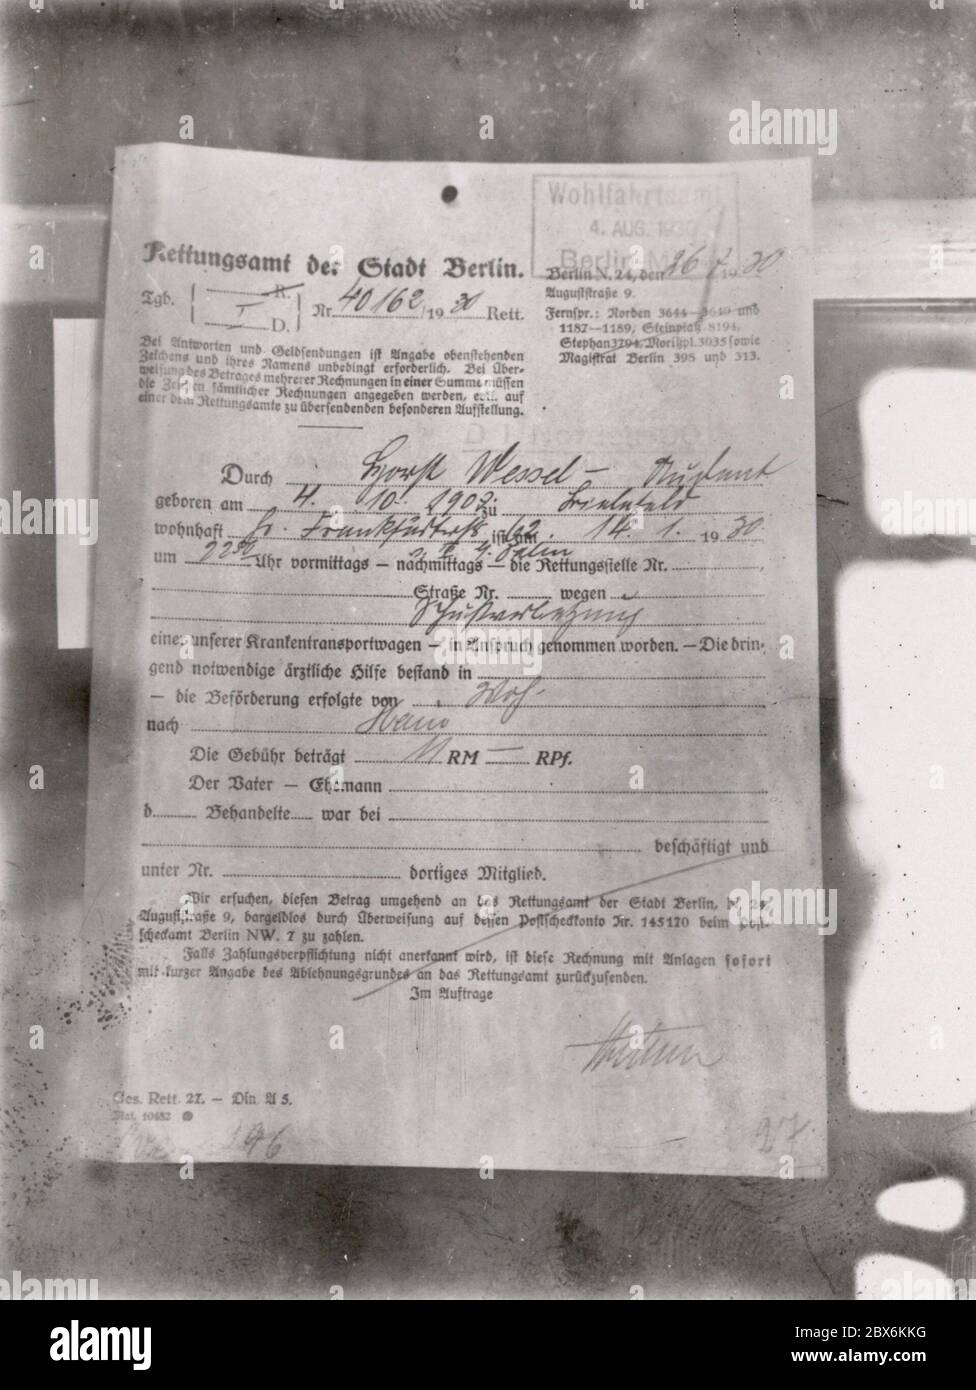 Wohlfahrtsamt
4. AUG. 1930
Berlin-M
Rettungsamt der Stadt Berlin.
Berlin N. 24, den 26 7 1930
Auguststraße 9.
Tgb. R. I D. Nr. 40162/1930 Rett.
Fernspr.: Norden 3644—3649 und
1187—1189, Steinplatz 8194,
Stephan 3294, Moritzpl. 3035 sowie
Magistrat Berlin 398 und 313.
Bei Antworten und Geldsendungen ist Angabe obenstehenden
Zeichens und ihres Namens unbedingt erforderlich. Bei Über-
weisung des Betrages mehrerer Rechnungen in einer Summe müssen
die Zeichen sämtlicher Rechnungen angegeben werden, evtl. auf
einer dem Rettungsamte zu übersendenden besonderen Aufstellung.
Durch Horst Wessel – Student
geboren am 4. 10. 1902 zu Bielefeld
wohnhaft Gr. Frankfurterstr 62. ist am 14. 1. 1930
um 22 Uhr vormittags — nachmittags — die Rettungsstelle Nr.
Straße Nr. wegen
Schußverletzung
eines unserer Krankentransportwagen — in Anspruch genommen worden. — Die drin-
gend notwendige ärztliche Hilfe bestand in
— die Beförderung erfolgte von Woh.
nach Hain
Die Gebühr beträgt 11 RM — RPf.
Der Vater — Ehemann
d Behandelte war bei
beschäftigt und
unter Nr. dortiges Mitglied.
Wir ersuchen, diesen Betrag umgehend an das Rettungsamt der Stadt Berlin, N. 24,
Auguststraße 9, bargeldlos durch Überweisung auf dessen Postscheckkonto Nr. 145170 beim Post-
scheckamt Berlin NW. 7 zu zahlen.
Falls Zahlungsverpflichtung nicht anerkannt wird, ist diese Rechnung mit Anlagen sofort
mit kurzer Angabe des Ablehnungsgrundes an das Rettungsamt zurückzusenden.
Im Auftrage
Ges. Rett. 27. — Din A 5.
Mat. 10482
96
27
alamy
Image ID: 2BX6KKG
www.alamy.com